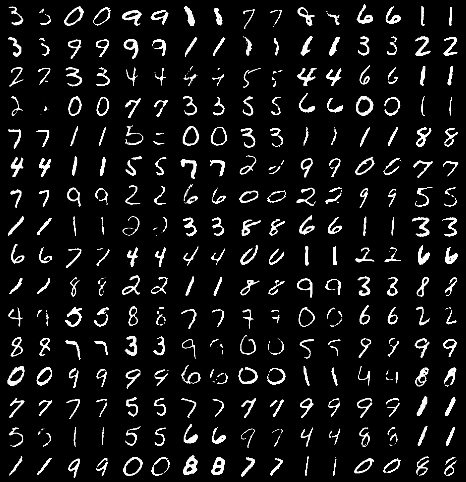 3 3 0 0 9 9 1 1 7 7 8 6 6 1 1
3 3 9 9 9 9 1 1 1 1 1 1 3 3 2 2
2 2 3 3 4 4 4 4 5 5 4 4 6 6 1 1
2 0 0 7 7 3 3 5 5 6 6 0 0 1 1
7 7 1 1 5 0 0 3 3 1 1 1 1 8 8
4 4 1 1 5 5 7 7 2 9 9 0 0 7 7
7 7 9 9 2 2 6 6 0 0 2 2 9 9 5 5
1 1 1 1 2 2 3 3 8 8 6 6 1 1 3 3
6 6 7 7 4 4 4 4 0 0 1 1 2 2 6 6
1 1 8 8 2 2 1 1 8 8 9 9 3 3 8 8
4 9 5 5 8 8 7 7 7 7 0 0 6 6 2 2
8 8 7 7 3 3 9 9 0 0 5 5 9 9 9 9
0 0 9 9 9 9 6 6 0 0 1 1 4 4 8 8
7 7 7 7 5 5 7 7 7 7 9 9 9 9 1 1
5 5 1 1 5 5 6 6 9 9 4 4 8 8 1 1
1 1 9 9 0 0 8 8 7 7 1 1 0 0 8 8